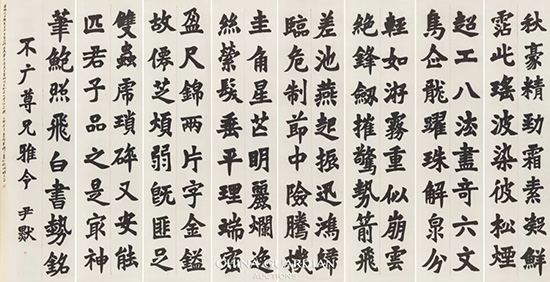 秋豪精勁霜素凝鮮
霑此瑤波染彼松煙
超工八法盡奇六文
鳥企龍躍珠解泉分
輕如游霧重似崩雲
絕鋒劒摧驚勢箭飛
差池燕起振迅鴻歸
臨危制節中險騰機
圭角星芒明麗爛逸
絲縈髮垂平理瑞密
盈尺錦兩片字金鎰
故僊芝煩弱既匪足
雙蟲虎瑣碎又安能
匹君子品之是冣神
筆鮑照飛白書勢銘
不广尊兄雅令 尹默
CHINA GUARDIAN
AUCTIONS